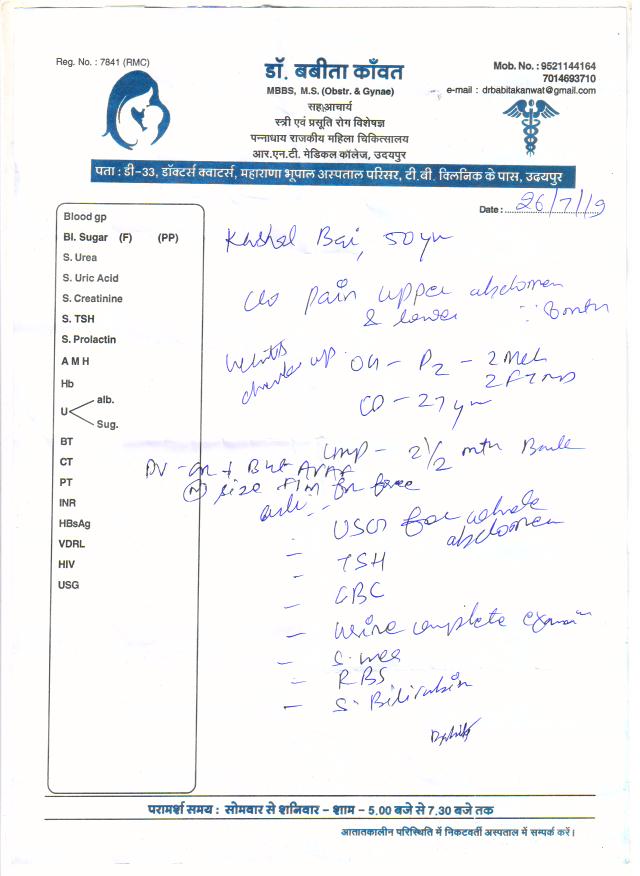 Reg. No. : 7841 (RMC)
डॉ. बबीता काँवत
MBBS, M.S. (Obstr. & Gynae)
सहआचार्य
स्त्री एवं प्रसूति रोग विशेषज्ञ
पन्नाधाय राजकीय महिला चिकित्सालय
आर.एन.टी. मेडिकल कॉलेज, उदयपुर
Mob. No. : 9521144164
7014693710
e-mail : drbabitakanwat@gmail.com
पता : डी-33, डॉक्टर्स क्वाटर्स, महाराणा भूपाल अस्पताल परिसर, टी.बी. क्लिनिक के पास, उदयपुर
Date : 26/7/19
Blood gp
Bl. Sugar (F) (PP)
S. Urea
S. Uric Acid
S. Creatinine
S. TSH
S. Prolactin
A M H
Hb
U
alb.
Sug.
BT
CT
PT
INR
HBsAg
VDRL
HIV
USG
Bai, 50 yr
c/o pain upper abdomen
& lower
up OH - P2 - 2
2 FTND
27 yr
LMP - 2 1/2 mth
PV -
(N) size
Adv :-
- USG for whole
abdomen
- TSH
- CBC
- urine complete
- S.
- RBS
- S. Bilirubin
परामर्श समय : सोमवार से शनिवार - शाम - 5.00 बजे से 7.30 बजे तक
आतातकालीन परिस्थिति में निकटवर्ती अस्पताल में सम्पर्क करें।